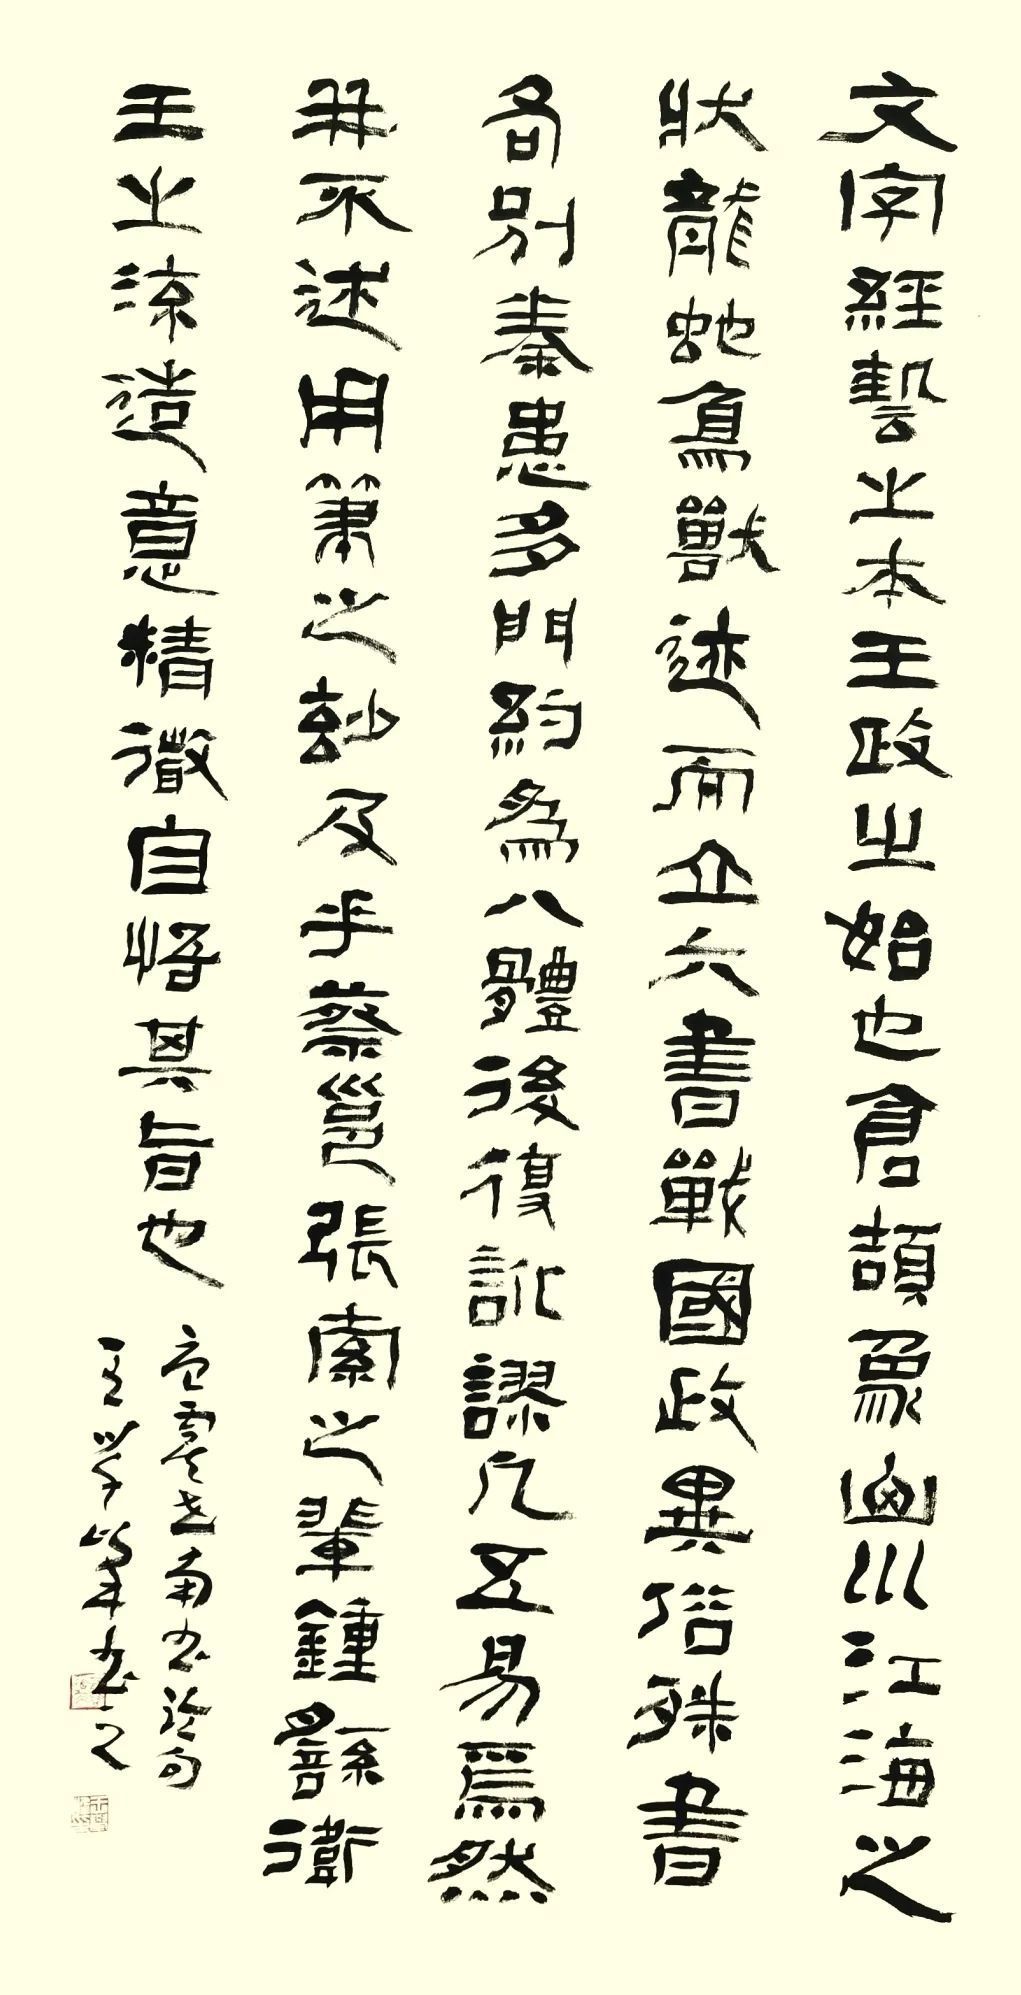 文字經藝之本王政之始也倉頡象山川江海之
狀龍蛇鳥獸迹而立六書戰國政異俗殊書
各別秦患多門約為八體後復訛謬凡五易焉然
并不述用筆之玅及乎蔡邕張索之輩鍾繇衛
王之流造意精微自悟其旨也
虞世南书论句
王学书之